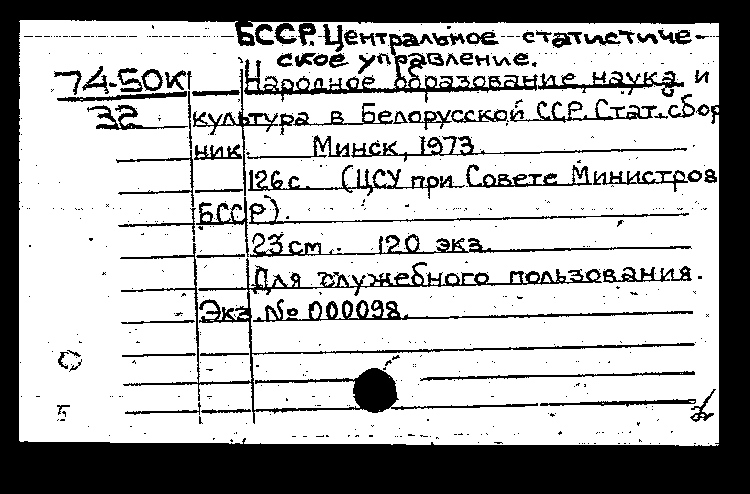 БССР. Центральное статистиче-
ское управление.
74-50К Народное образование, наука и
32 культура в Белорусской ССР. Стат. сбор
ник. Минск, 1973.
126 с. (ЦСУ при Совете Министров
БССР).
23 см. 120 экз.
Для служебного пользования.
Экз. № 000098.